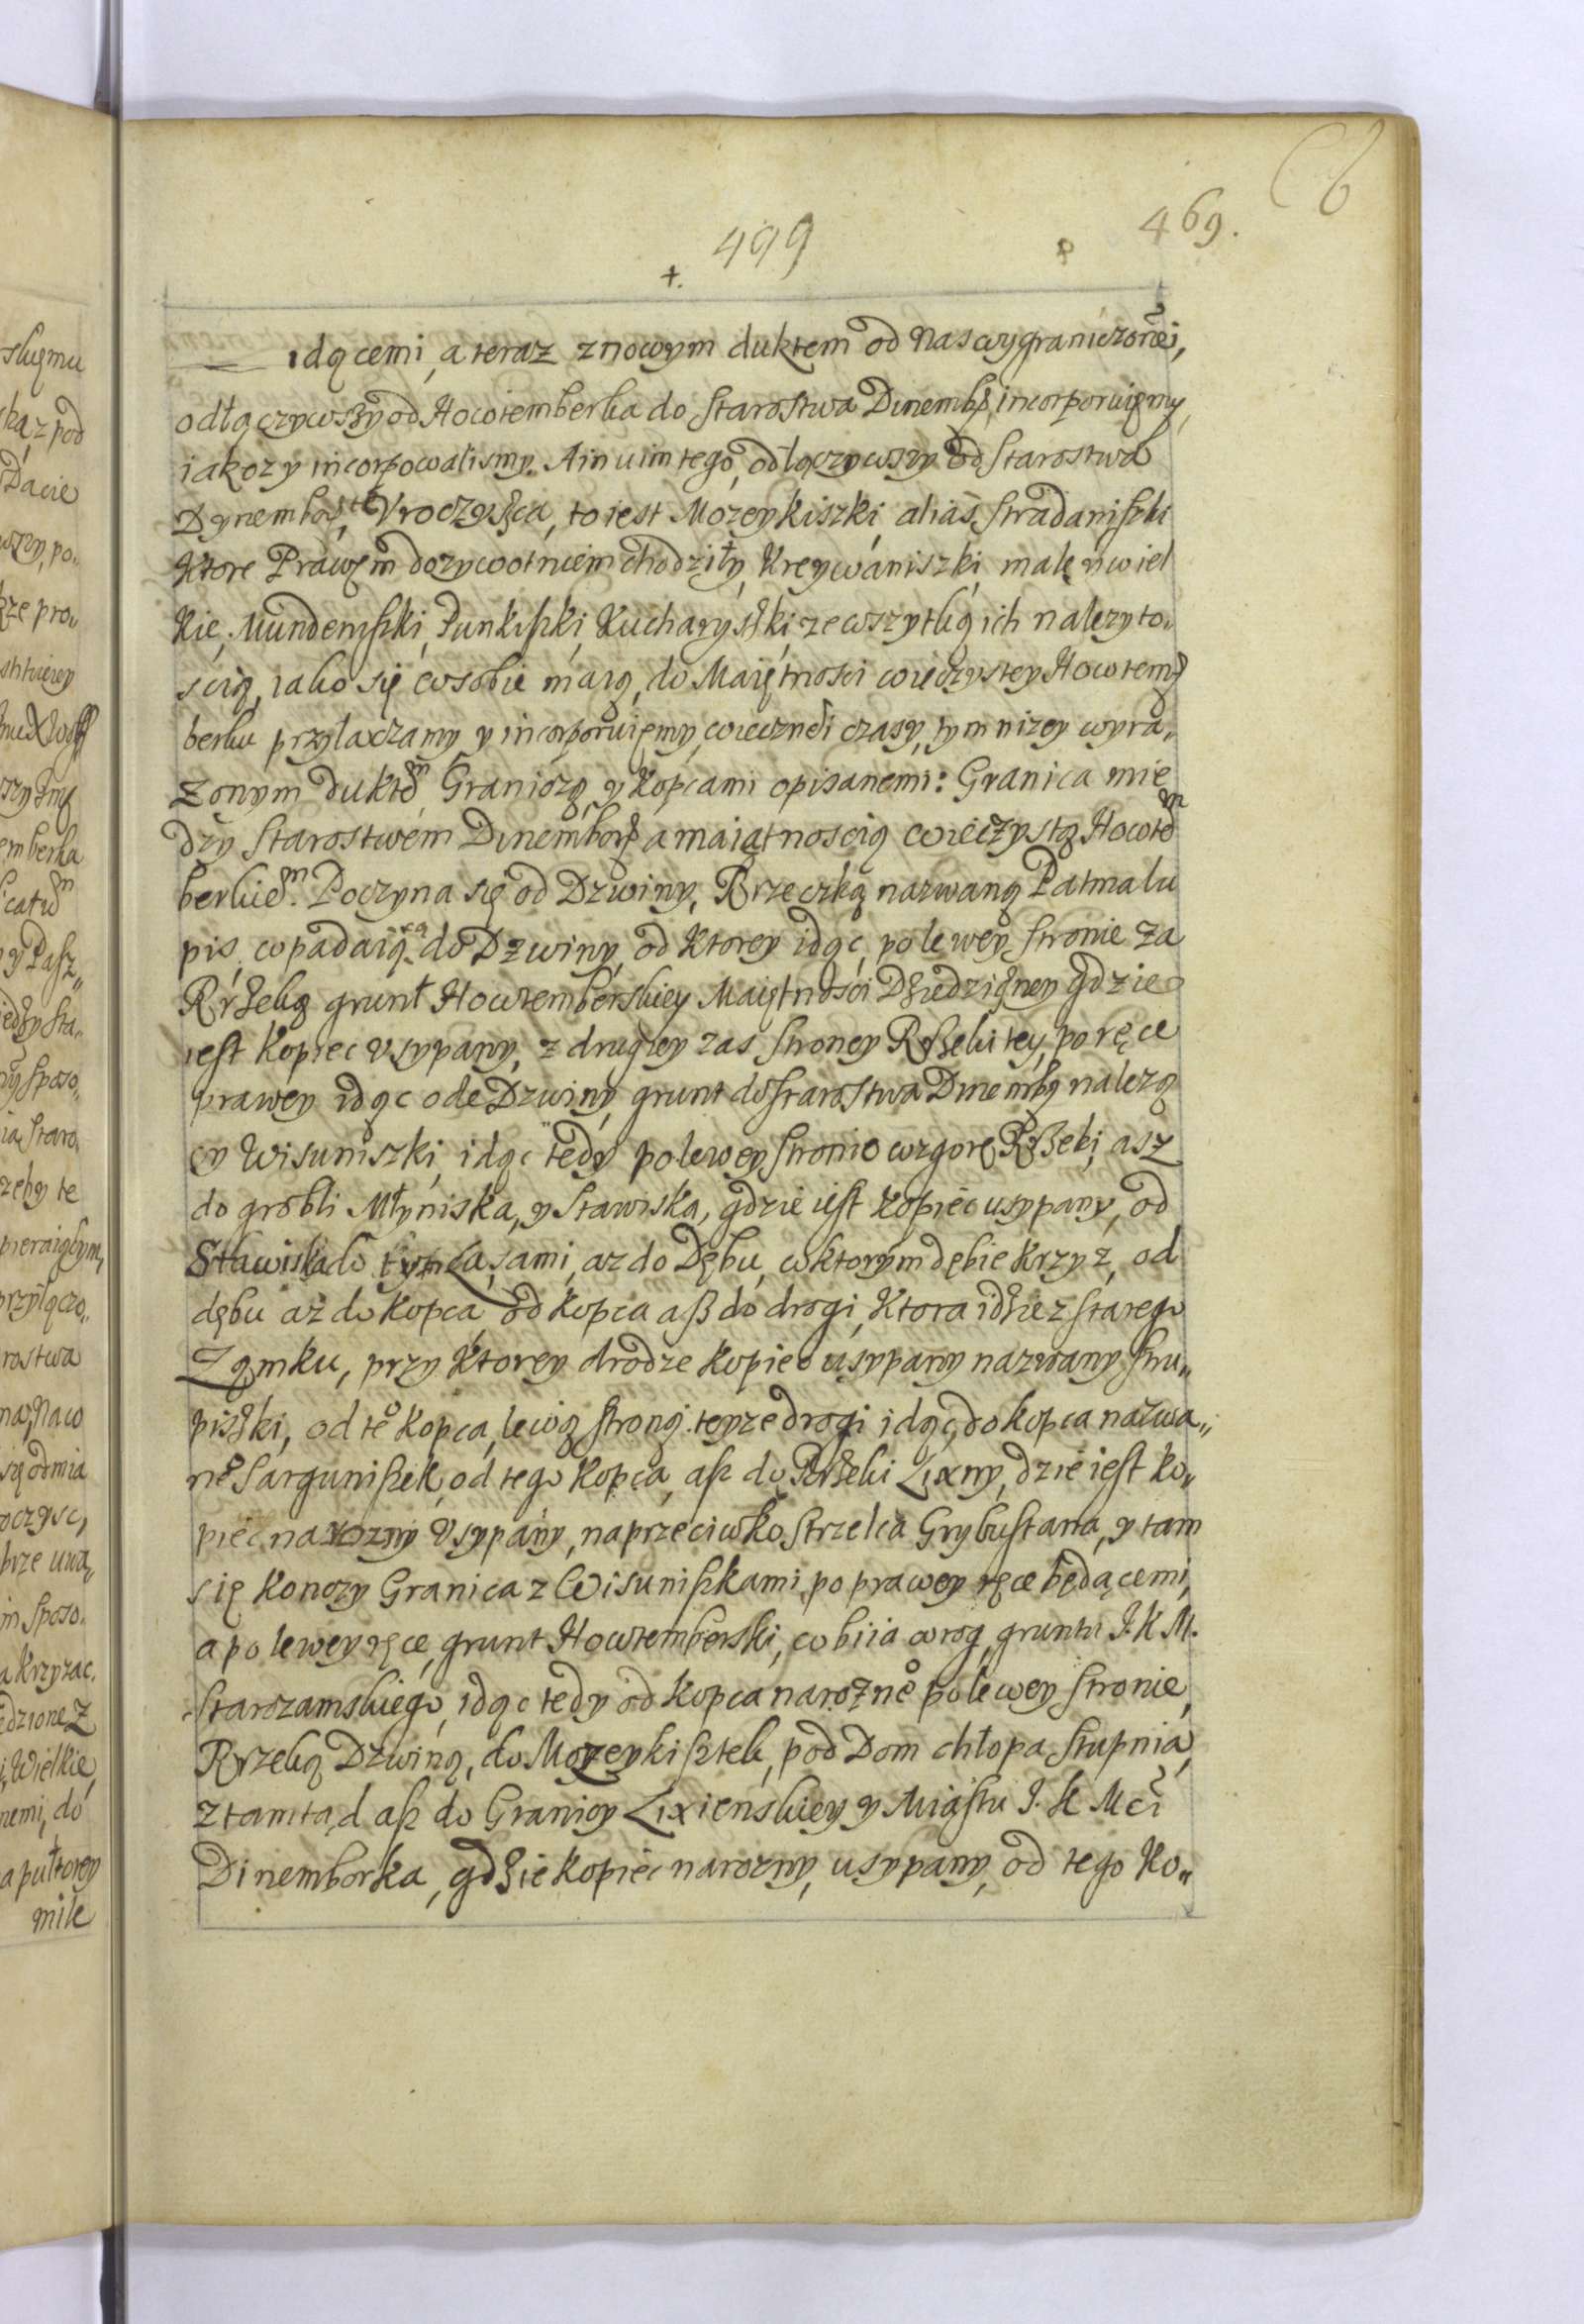 469.
499
idącemi, a teraz z nowym duktem od Nas wygraniczonei,
odłączywszy od Nowtemberka do Starostwa Dinemb: incorporuięmy,
iakoz y incorpowalismy. A in vim tego, odłączywszy od Starostwa
Dynembor: te Vroczyszcza, to iest Mozeykiszki, alias Stradaniszki
Ktore Prawem dozywotniem chodziły, Kreywaniszki, małe y wiel
kie, Mundeniszki, Punkiszki, Kucharyszki, ze wszytką ich nalezyto„
scią, iako się w sobie maią, do Maiętnosci wieczystey Nowtem
berku przyłaxzamy y incorporuięmy, wiecznei czasy, tym nizey wyra„
zonym duktem Graniczą y Kopcami opisanemi: Granica mie
dzy Starostwem Dinembor: a maiątnoscią wieczystą Nowtem
berkiem. Poczyna się od Dzwiny, Rzeczką nazwaną Patmalu
pis, wpadaiącą do Dzwiny, od Ktorey idąc, po lewey stronie za
Rzeką grunt Nowtemberskiey Maiętnosci Dziedziczney gdzie
iest Kopiec Vsypany, z drugiey zas Stroney Rzeki tey, po ręce
prawey idąc ode Dzwiny, grunt do Starostwa Dinemb: nalezą
cy Wisuniszki, idąc tedy po lewey stronie wzgorę Rzeki, asz
do grobli Młyniska, y Stawiska, gdzie iest Kopiec usypany, od
Stawiska do tyn Lasami, az do Dębu, w ktorym dębie Krzyz, od
dębu az do Kopca od Kopca asz do drogi, Ktora idzie z starego
Zamku, przy Ktorey drodze Kopiec usypany nazwany Stru„
piszki, od te° Kopca, lewią stroną teyze drogi idąc, do kopca nazwa„
ne° Sarguniszek, od tego Kopca, asz do Rzeki Lixny, dzie iest ko„
piec narozny Vsypany, naprzeciwko Strzelca Grybustana, y tam
się Konczy Granica z Wisuniszkami, po prawey ręce będącemi,
a po lewey ręce, grunt Nowtemberski, wbiia w rog, gruntu J. K M.
Starozamskiego, idąc tedy od Kopca narozne° po lewey stronie,
Rzeką Dzwiną, do Mozeykisztek, pod Dom chłopa Stupnia,
z tamtąd asz do Granicy Lixienskiey y Miastu J. K Mci
Dinemborka, gdzie kopiec narozny, usypany, od tego Ko„